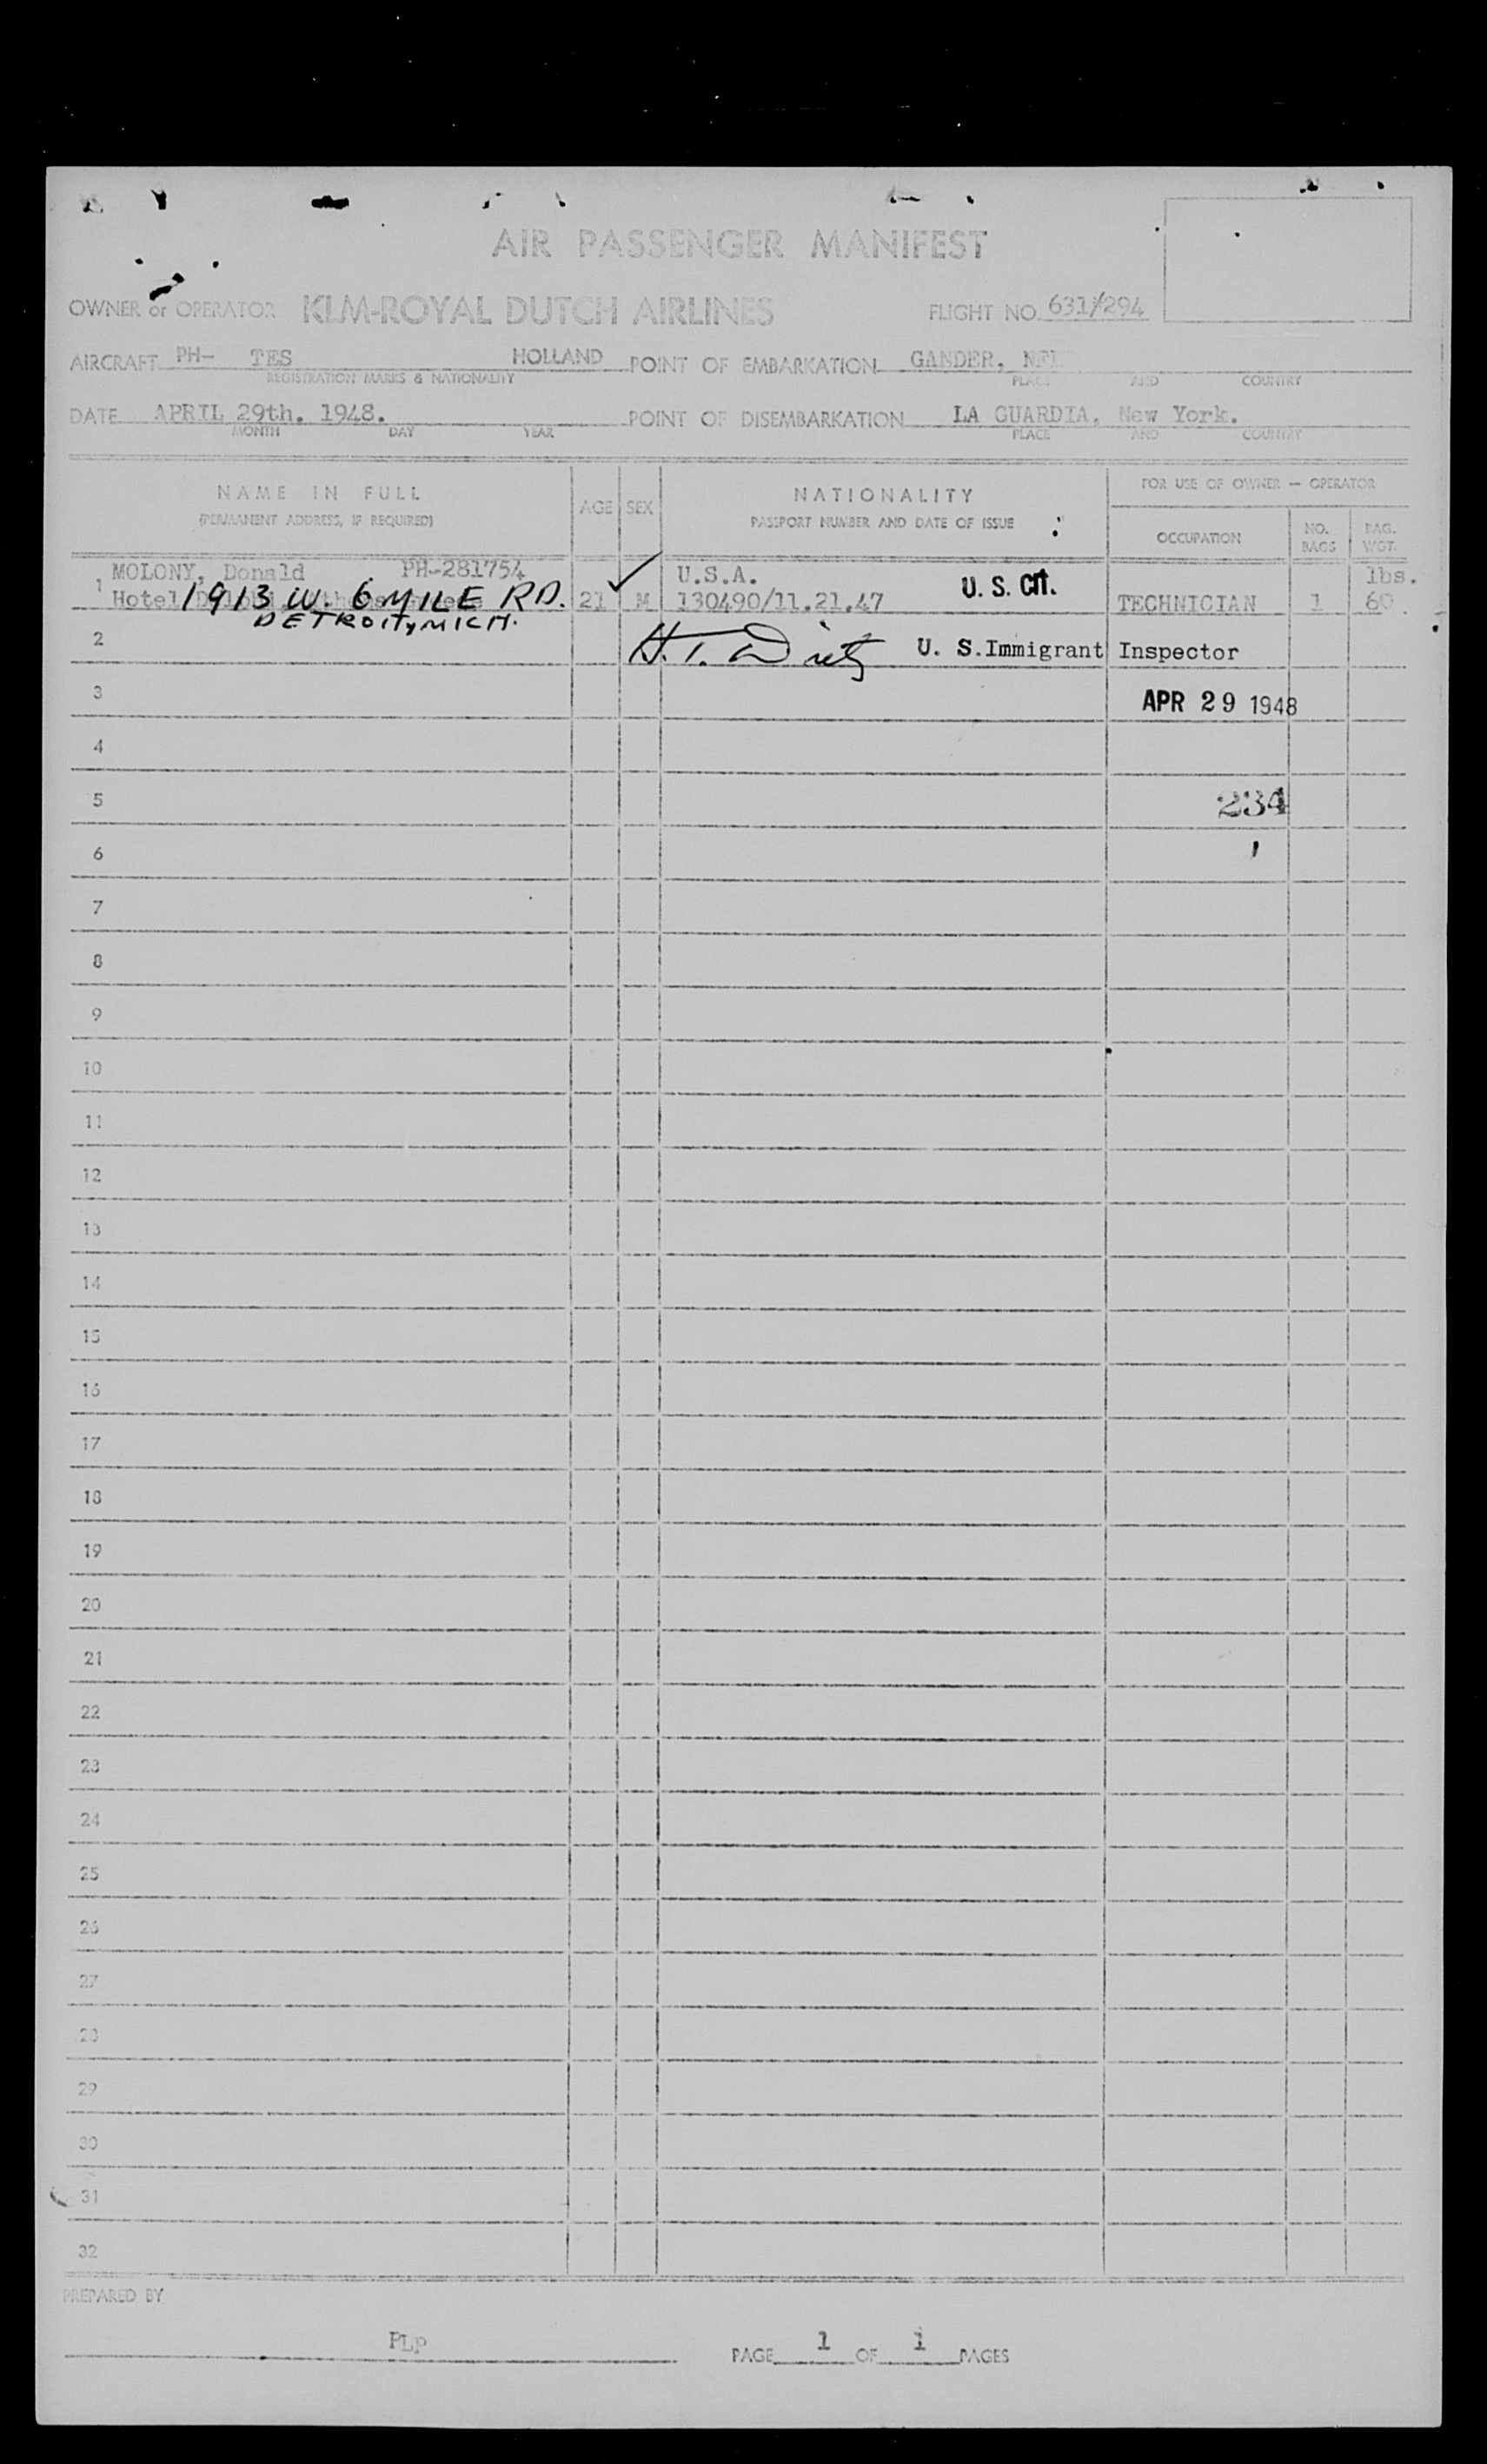 AIR PASSENGER MANIFEST
OWNER or OPERATOR KLM-ROYAL DUTCH AIRLINES FLIGHT NO. 631/294
AIRCRAFT PH- TES HOLLAND POINT OF EMBARKATION GANDER, NFL
REGISTRATION MARKS & NATIONALITY PLACE AND COUNTRY
DATE APRIL 29th. 1948. POINT OF DISEMBARKATION LA GUARDIA, New York.
MONTH DAY YEAR PLACE AND COUNTRY
NAME IN FULL
(PERMANENT ADDRESS, IF REQUIRED)
AGE SEX
NATIONALITY
PASSPORT NUMBER AND DATE OF ISSUE
FOR USE OF OWNER — OPERATOR
OCCUPATION
NO. BAGS
BAG. WGT.
1 MOLONY, Donald PH-281754 U.S.A. U. S. Cit. lbs.
Hotel 1913 W. 6 MILE RD. 21 M 130490/11.21.47 TECHNICIAN 1 60.
DETROIT, MICH.
2 U. S. Immigrant Inspector
3 APR 29 1948
4
5 234
6
7
8
9
10
11
12
13
14
15
16
17
18
19
20
21
22
23
24
25
26
27
28
29
30
31
32
PREPARED BY
PLp PAGE 1 OF 1 PAGES